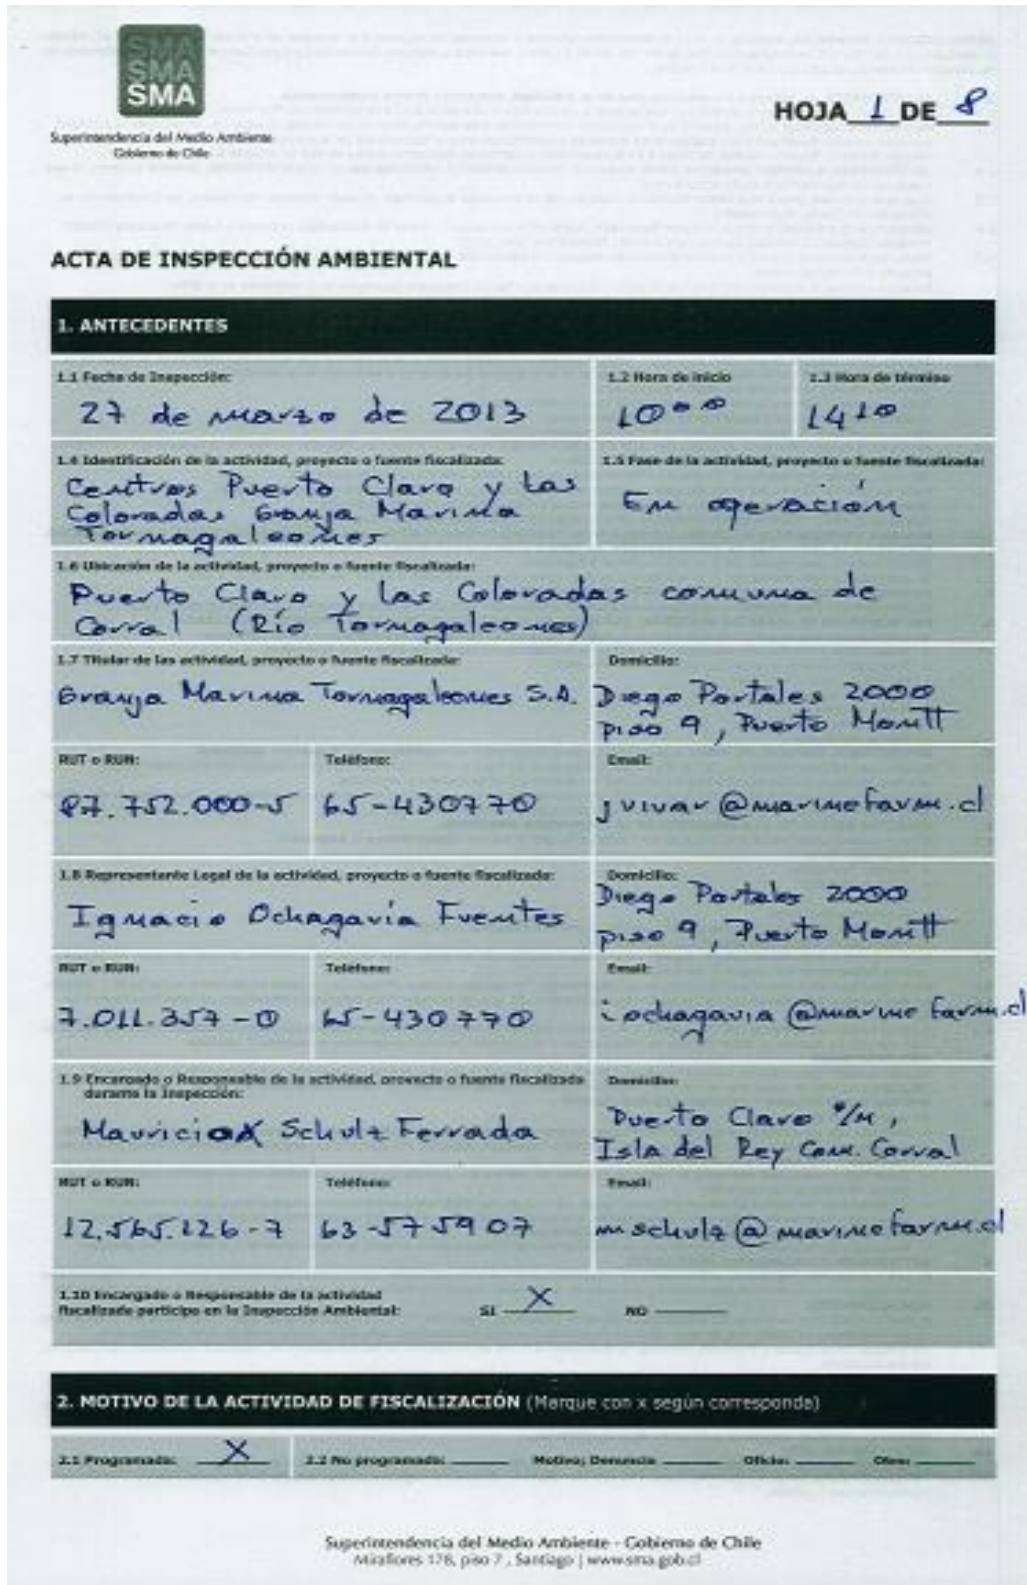 SMA
SMA
SMA
Superintendencia del Medio Ambiente
Gobierno de Chile
HOJA 1 DE 8
ACTA DE INSPECCIÓN AMBIENTAL
1. ANTECEDENTES
1.1 Fecha de Inspección:
27 de marzo de 2013
1.2 Hora de inicio
10:00
1.3 Hora de término
14:10
1.4 Identificación de la actividad, proyecto o fuente fiscalizada:
Centros Puerto Claro y Las
Coloradas Granja Marina
Tornagaleones
1.5 Fase de la actividad, proyecto o fuente fiscalizada:
En operación
1.6 Ubicación de la actividad, proyecto o fuente fiscalizada:
Puerto Claro y las Coloradas comuna de
Corral (Río Tornagaleones)
1.7 Titular de las actividad, proyecto o fuente fiscalizada:
Granja Marina Tornagaleones S.A.
Domicilio:
Diego Portales 2000
piso 9, Puerto Montt
RUT o RUN:
87.752.000-5
Teléfono:
65-430770
Email:
jvivar@marinefarm.cl
1.8 Representante Legal de la actividad, proyecto o fuente fiscalizada:
Ignacio Ochagavía Fuentes
Domicilio:
Diego Portales 2000
piso 9, Puerto Montt
RUT o RUN:
7.011.357-0
Teléfono:
65-430770
Email:
iochagavia@marinefarm.cl
1.9 Encargado o Responsable de la actividad, proyecto o fuente fiscalizada
durante la Inspección:
Mauricio Schulz Ferrada
Domicilio:
Puerto Claro s/n,
Isla del Rey Com. Corral
RUT o RUN:
12.565.126-7
Teléfono:
63-575907
Email:
mschulz@marinefarm.cl
1.10 Encargado o Responsable de la actividad
fiscalizada participo en la Inspección Ambiental:
SI X NO
2. MOTIVO DE LA ACTIVIDAD DE FISCALIZACIÓN (Marque con x según corresponda)
2.1 Programada: X 2.2 No programada: Motivo: Denuncia Oficio: Otro:
Superintendencia del Medio Ambiente - Gobierno de Chile
Miraflores 178, piso 7, Santiago | www.sma.gob.cl